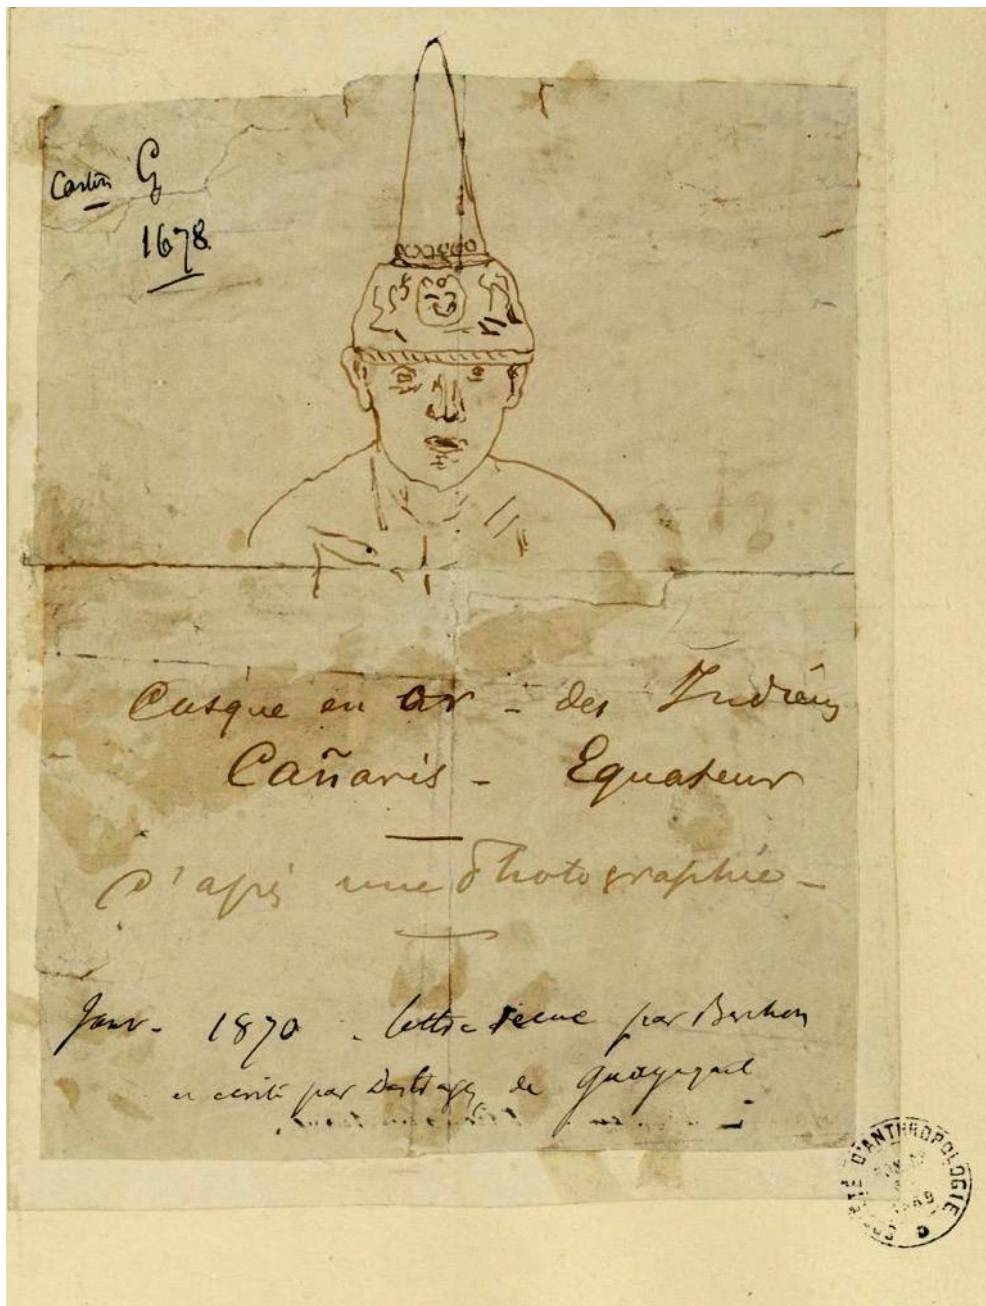 Carton G
1678
Casque en or - des Indiens
Cañaris - Equateur
D'après une Photographie -
Janv. 1870. lettre reçue par Berchon
et écrite par de Guayaquil
SOCIÉTÉ D'ANTHROPOLOGIE